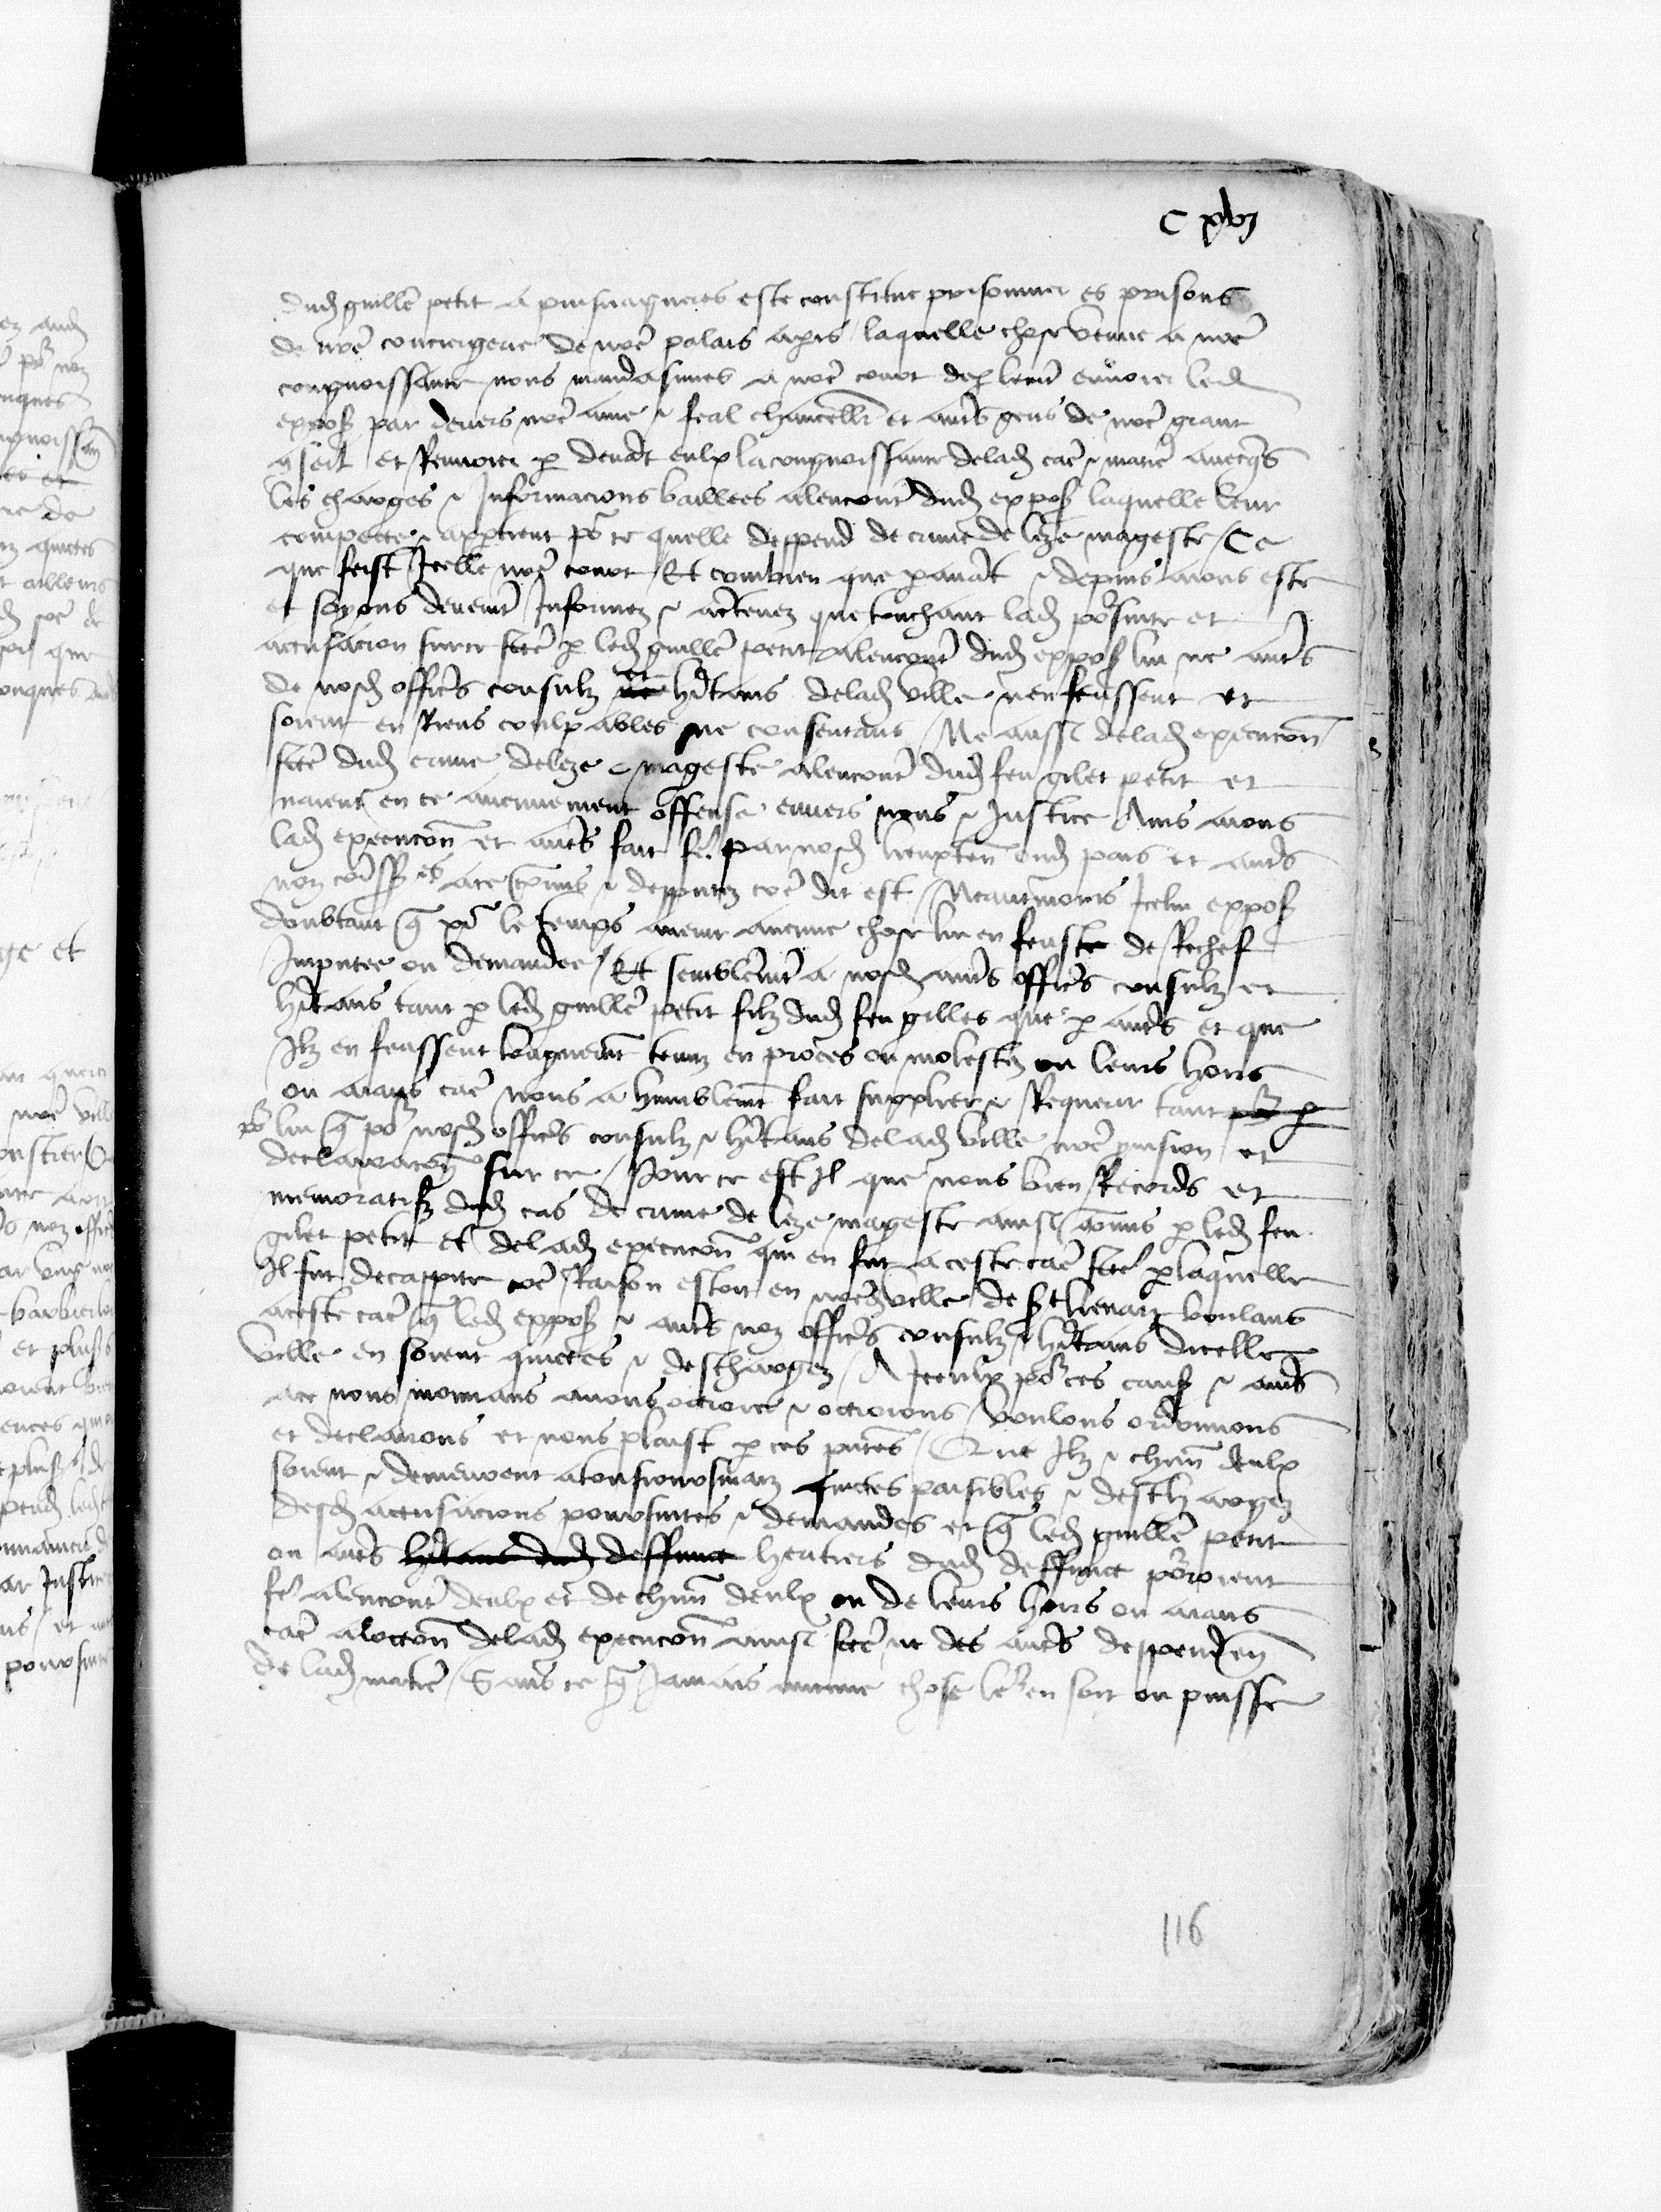 C xvj
dud guille petit a puis nagueres este constitue prisonnier es prisons
de nre conciergerie de nre palais a paris / laquelle chose venue a nre
congnoissance nous mandasmes a nre court de plement envoier led
expos par devers nre ame & feal chancellr et autres gens de nre grant
conseil et Renvoier p devant eulx la congnoissance de lad cae & matie avecqs
les charges & Informacions baillees alencont dud expos laquelle leur
compecte & appient po ce quelle deppend de crime de leze mageste / Ce
que feist Icelle nre court / Et combien que p avant & depuis aions este
et soyons deuemt Informez & acertenez que touchant lad posuite et
accusacion sur ce fcte p led guille petit alencont dud expos lui ne auts
de nosd offics consulz et hitans de lad ville nen feussent et
soient en Riens coulpables ne consentans / Ne aussi de lad execucon
fcte dud crime de leze mageste alencont dud feu gilet petit et
naient en ce aucunement offense envers nous & Justice Ains avons
lad execucon et auts fait fe par nosd lieuxten oud pais et auts
noz comissres a ce commis & depputez coe dit est / Neantmoins Icelui expos
doubtant q po le temps avenir aucune chose lui en feust de Rechef
Imputee ou demandee / Et semblemt a nosd auts offics consulz et
hitans tant p led guille petit filz dud feu gilles que p auts et que
Ilz en feussent longuemt tenuz en proces ou molestez ou leurs hoirs
ou aians cae nous a humblemt fait supplier & Requerir tant po p
po lui q po nosd offics consulz & hitans de lad ville nre provision et
declaracon sur ce / Pour ce est Il que nous bien Records et
memoratifz dud cas de crime de leze mageste ainsi commis p led feu
gilet petit et de lad execucon qui en fut a ceste cae fcte p laquelle
Il fut decappite coe Raison estoit en nred ville de st lienart voulans
a ceste cae q led expos & auts noz offics consulz & hitans dicelle
ville en soient quictes & deschargez / A Iceulx po ces caus & auts
a ce nous mouvans avons octroie & octroions / voulons ordonnons
et declairons et nous plaist p ces pntes / Que Ilz & chun deulx
soient & demeurent a tousiours mais quictes paisibles & deschargez
desd accusacions poursuites & demandes et q led guille petit
ou auts hitans dud deffunct heritiers dud deffunct porroient
fe alencont deulx et de chun deulx ou de leurs hoirs ou aians
cae a loccon de lad execucon ainsi fcte ne des auts deppenden
de lad matie / Sans ce q Jamais aucune chose leur en soit ou puisse
116